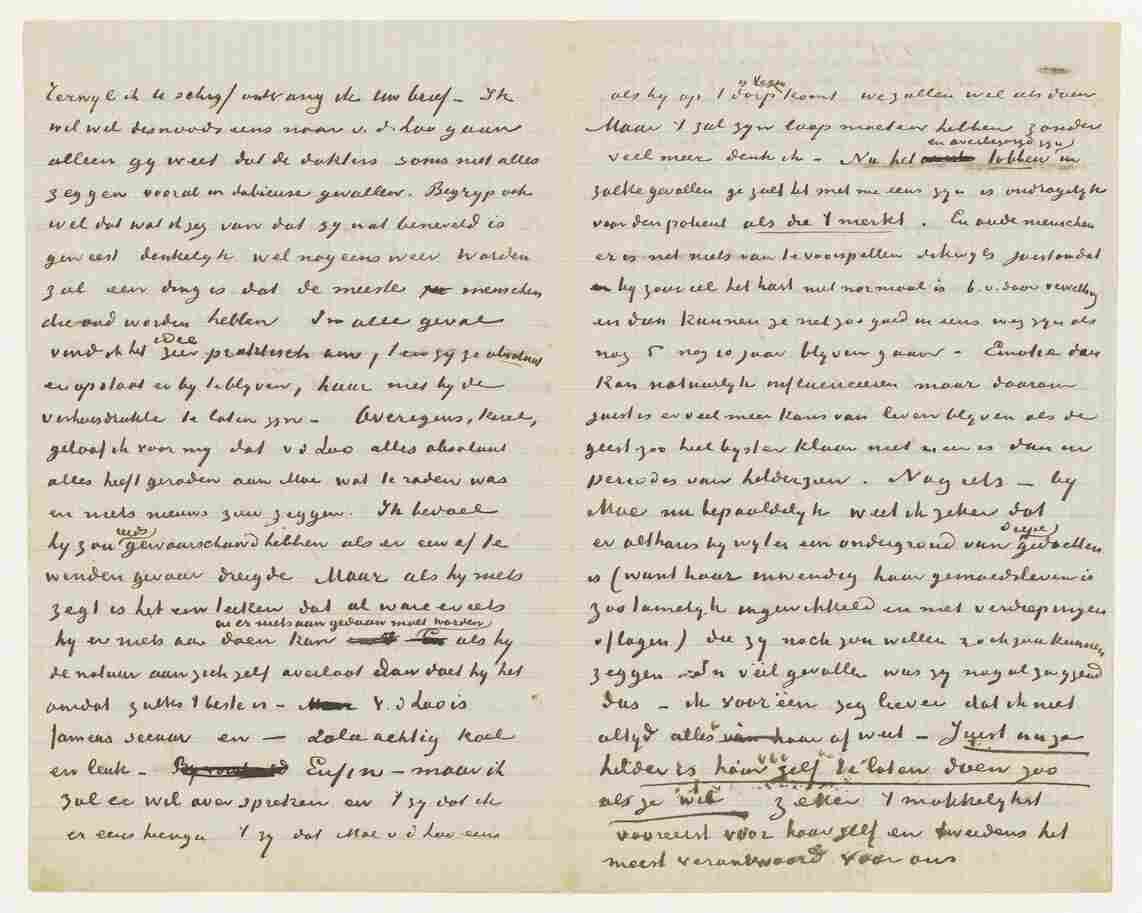 Terwyl ik te schryf ontvang ik uw brief – Ik
wil wel desnoods eens naar v. d. Loo gaan
alleen gy weet dat de dokters soms niet alles
zeggen vooral in dubieuse gevallen. Begryp ook
wel dat wat ik zeg van dat zy wat beneveld is
geweest denkelyk wel nog eens weer worden
zal een ding is dat de meeste menschen
die oud worden hebben In alle geval
vind ik het idee zeer praktisch om, tenzy ze absoluut
er op staat er by te blyven, haar niet by de
verhuisdrukte te laten zyn – Overigens, kerel,
geloof ik voor my dat v d Loo alles absoluut
alles heeft geraden aan Moe wat te raden was
en niets nieuws zou zeggen. Ik bevoel
hy zou reeds gewaarschuwd hebben als er een of te
wenden gevaar dreigde Maar als hy niets
zegt is het een teeken dat al ware er iets
hy er niets aan doen kan en er niets aan gedaan moet worden als hy
de natuur aan zich zelf overlaat dan doet hy het
omdat zulks 't beste is – V. d Loo is
fameus secuur en – Zola achtig koel
en leuk – Enfin – maar ik
zal er wel over spreken en 't zy dat ik
er eens heenga 't zy dat Moe v d Loo eens
als hy op 't dorp komt we zullen wel eens doen
Maar 't zal zyn loop moeten hebben zonder
veel meer denk ik – Nu het tobben en overbezorgd zyn in
zulke gevallen ge zult het met me eens zyn is ondragelyk
voor den patient als die 't merkt. En oude menschen
er is net niets van te voorspellen dikwyls juist omdat
by zoo veel het hart niet normaal is b. v. door vervetting
en dan kunnen ze net zoo goed in eens weg zyn als
nog 5 nog 10 jaar blyven gaan – Emotie dan
kan natuurlyk influenceeren maar daarom
juist is er veel meer kans van leven blyven als de
geest zoo heel byster klaar niet meer is dan in
periodes van helderzien. Nog iets – by
Moe nu bepaaldelyk weet ik zeker dat
er althans by wylen een ondergrond van diepe gedachten
is (want haar inwendig haar gemoedsleven is
zoo tamelyk ingewikkeld en met verdiepingen
of lagen) die zy noch zou willen noch zou kunnen
zeggen in veel gevallen was zy nog al zwygend
dus – ik voor één zeg liever dat ik niet
altyd alles van haar af weet – Juist nu ze
helder is haar zelf te laten doen zoo
als ze wil zeker 't makkelykst
vooreerst voor haarzelf en tweedens het
meest verantwoord voor ons